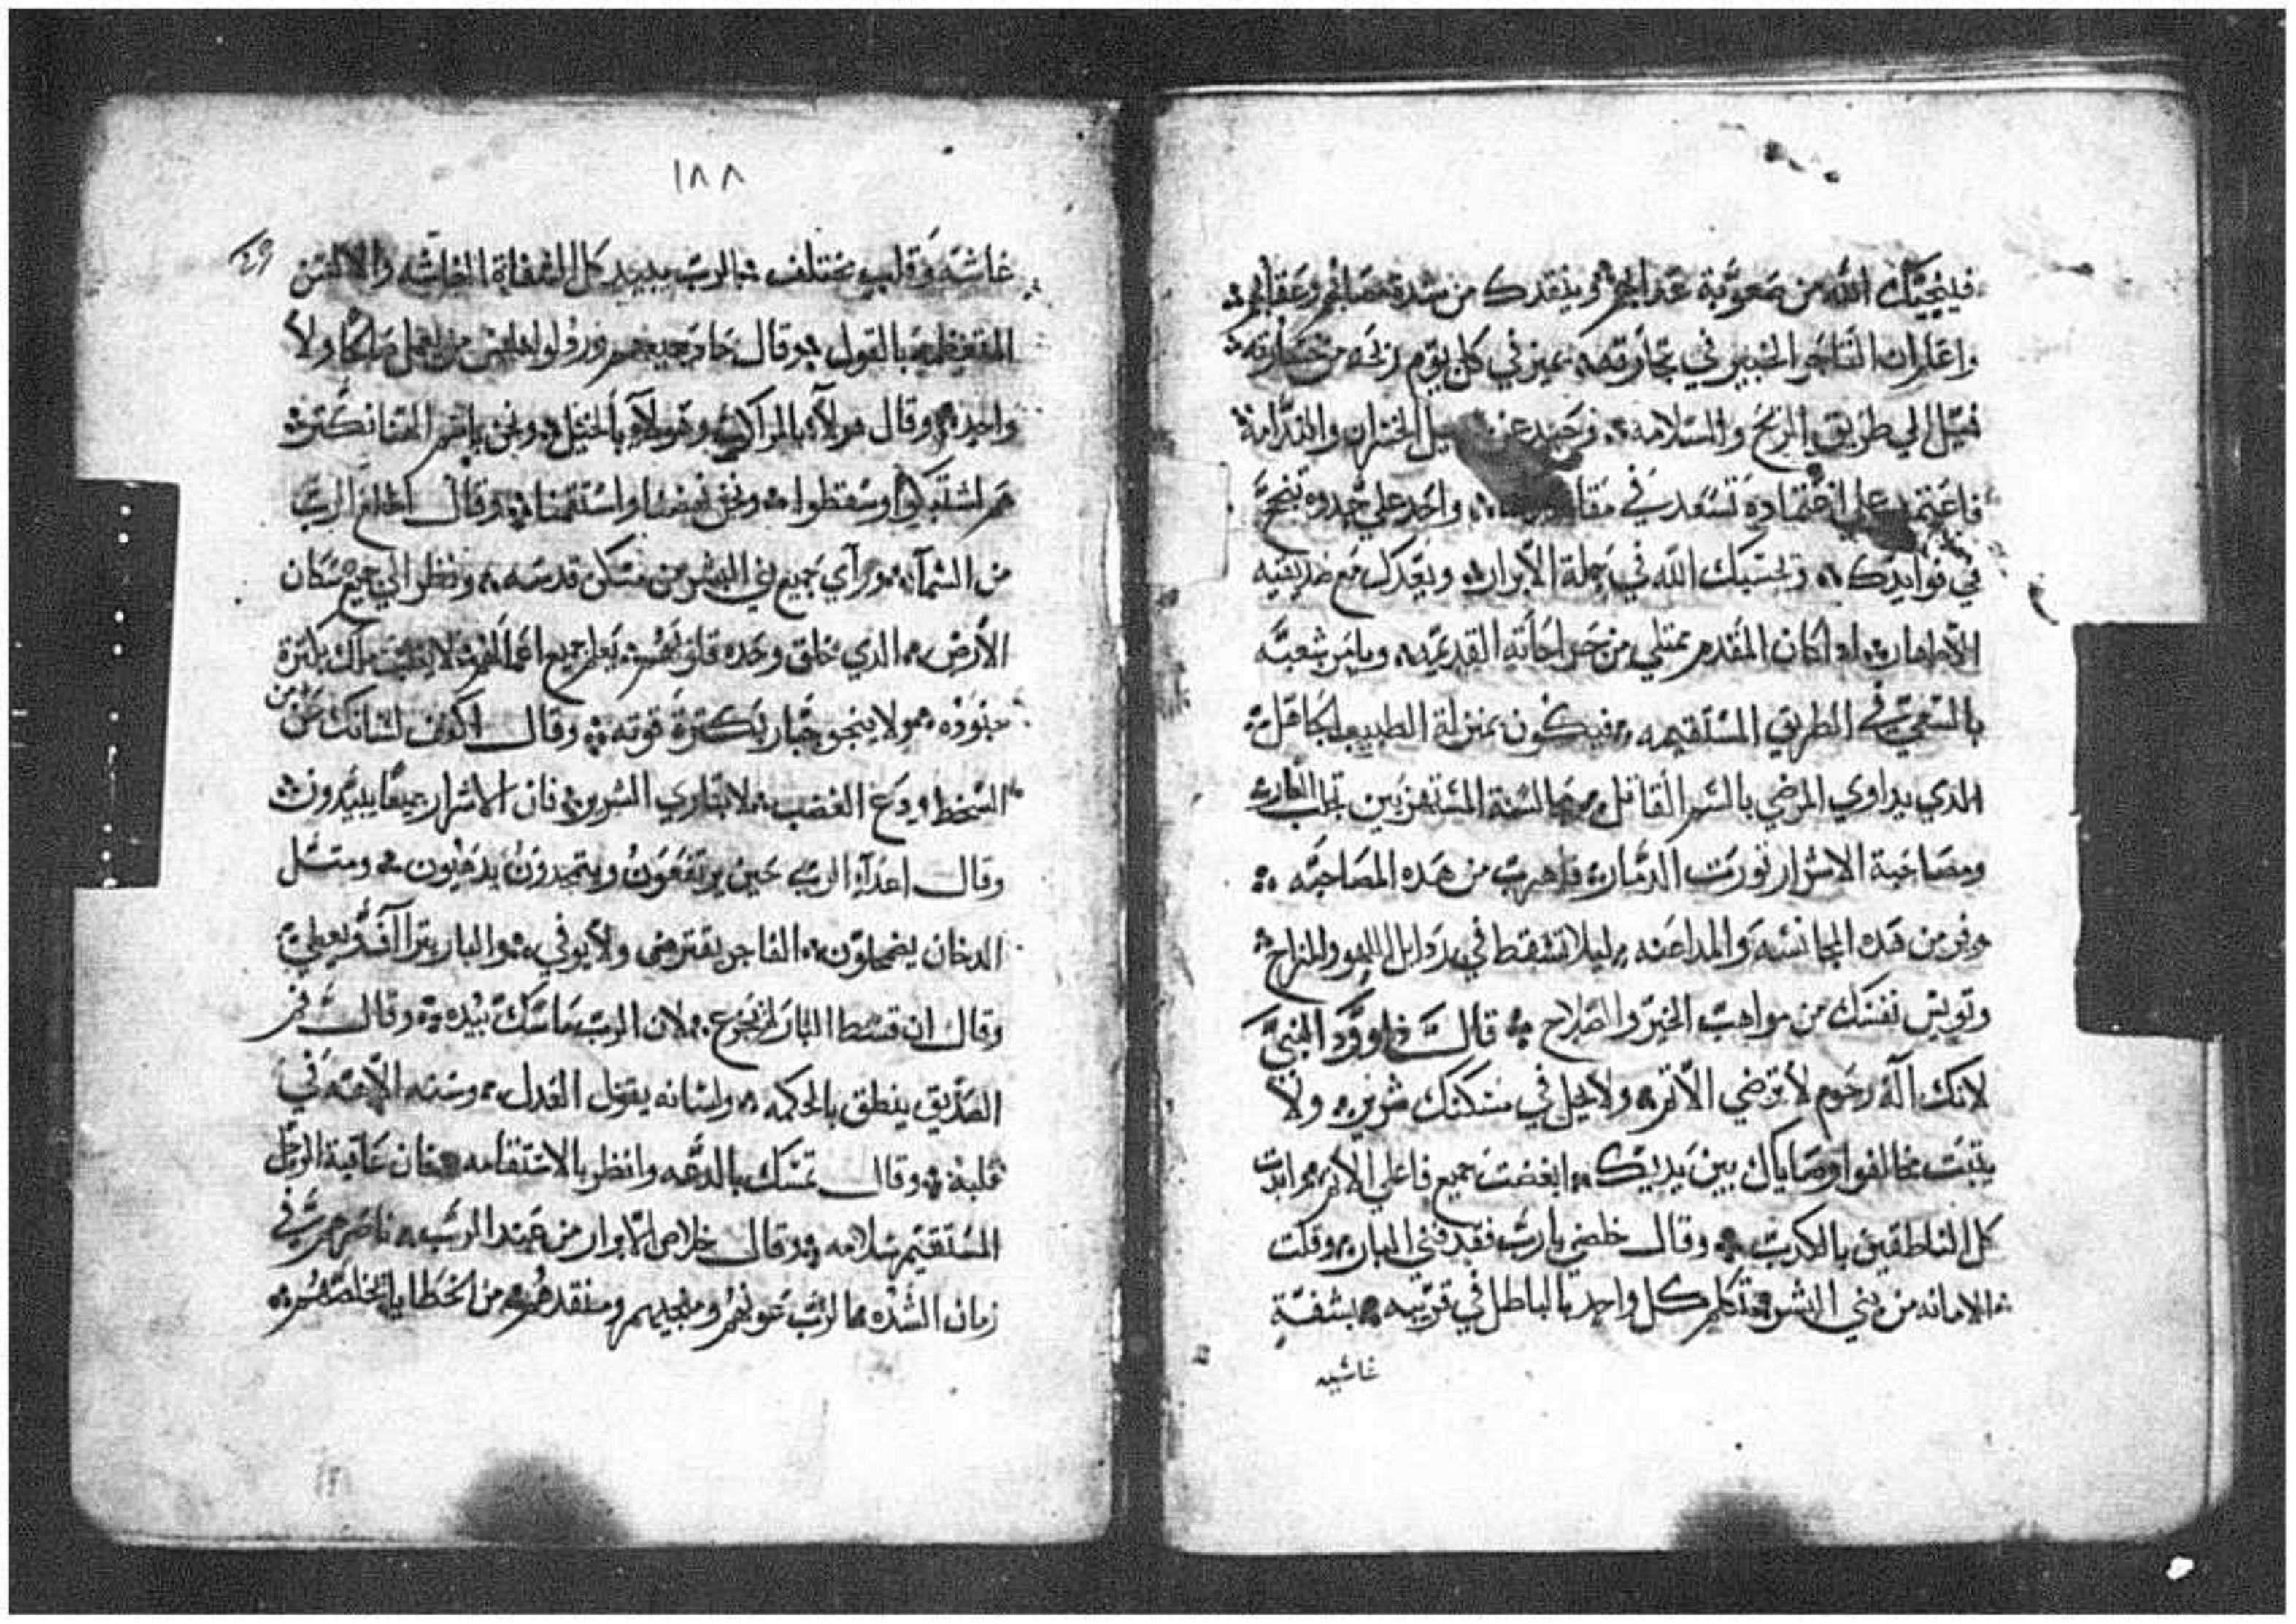 فينجيك الله من صعوبة عذابهم وينقدك من شدة قصاصهم وعقابهم
واعلم ان التاجر الخبير في تجارته يميز في كل يوم ربحه من خسارته
فمِل الي طريق الربح والسلامه وحيد عن سبيل الخسران والندامة
فاعتمد علي اعتماده تسعد في واحد علي حدوه تنجح
في فوايدك ويحسبك الله في جملة الابرار ويعدك مع صديقيه
الاطهار ادا كان المقدم ممتلي من ويامر شعبه
بالسعي في الطريق المستقيمه فيكون بمنزلة الطبيب الجاهل
الدي يداوي المرضي بالسم القاتل مجالسة المستهزيين تجلب العار
ومصاحبة الاشرار تورت الدمار فاهرب من هده المصاحبه
وفر من هده المجانسه والمداعبه ليلا تسقط في اللهو والمزاح
وتويس نفسك من مواهب الخير والصلاح قال داوود النبي
لانك اله رحوم لا ترضي الاتم ولا يحل في مسكنك شرير ولا
يتبت مخالفوا وصاياك بين يديك ابغضت جميع فاعلي الاتم وابدت
كل الناطقين بالكدب وقال خلصني يارب فقد فني البار وقلت
الامانه من بني البشر تكلم كل واحد بالباطل في قريبه بشفة
غاشيه
١٨٨
غاشه وقلب مختلف الرب يبيد كل الشفاة الغاشه والالسن
المتعظمه بالقول وقال حادو جميعهم وردلوا وليس من يعمل صالحا ولا
واحد وقال هولاء بالمراكب وهولاء بالخيل ونحن باسم الهنا نكتر
هم اشتبكوا وسقطوا ونحن نهضنا واستقمنا وقال اطلع الرب
من السماء وراي جميع بني البشر من مسكن قدسه ونظر الي جميع سكان
الارض الدي خلق وحده قلوبهم يعلم جميع اعمالهم لا يغلب ملك بكترة
جنوده ولا ينجو جبار بكترة قوته وقال اكفف لسانك عن من
السخط ودع الغضب لا تباري الشرير فان الاشرار جميعا يبيدون
وقال اعداء الرب حين يرتفعون ويتمجدون يدهبون ومتل
الدخان يضمحلون الفاجر يقترض ولا يوفي والبار يتراأف ويعطي
وقال ان سقط البار لم يجزع لان الرب ماسك بيده وقال فم
الصديق ينطق بالحكمه ولسانه يقول العدل وسنة الاهه في
قلبه وقال تمسك بالدعه وانظر بالاستقامه فان عاقبة الرجل
المستقيم سلامه وقال خلاص الابرار من عند الرب ناصرهم في
زمان الشده الرب عونهم ومنجيهم ومنقدهم من الخطايا يخلصهم